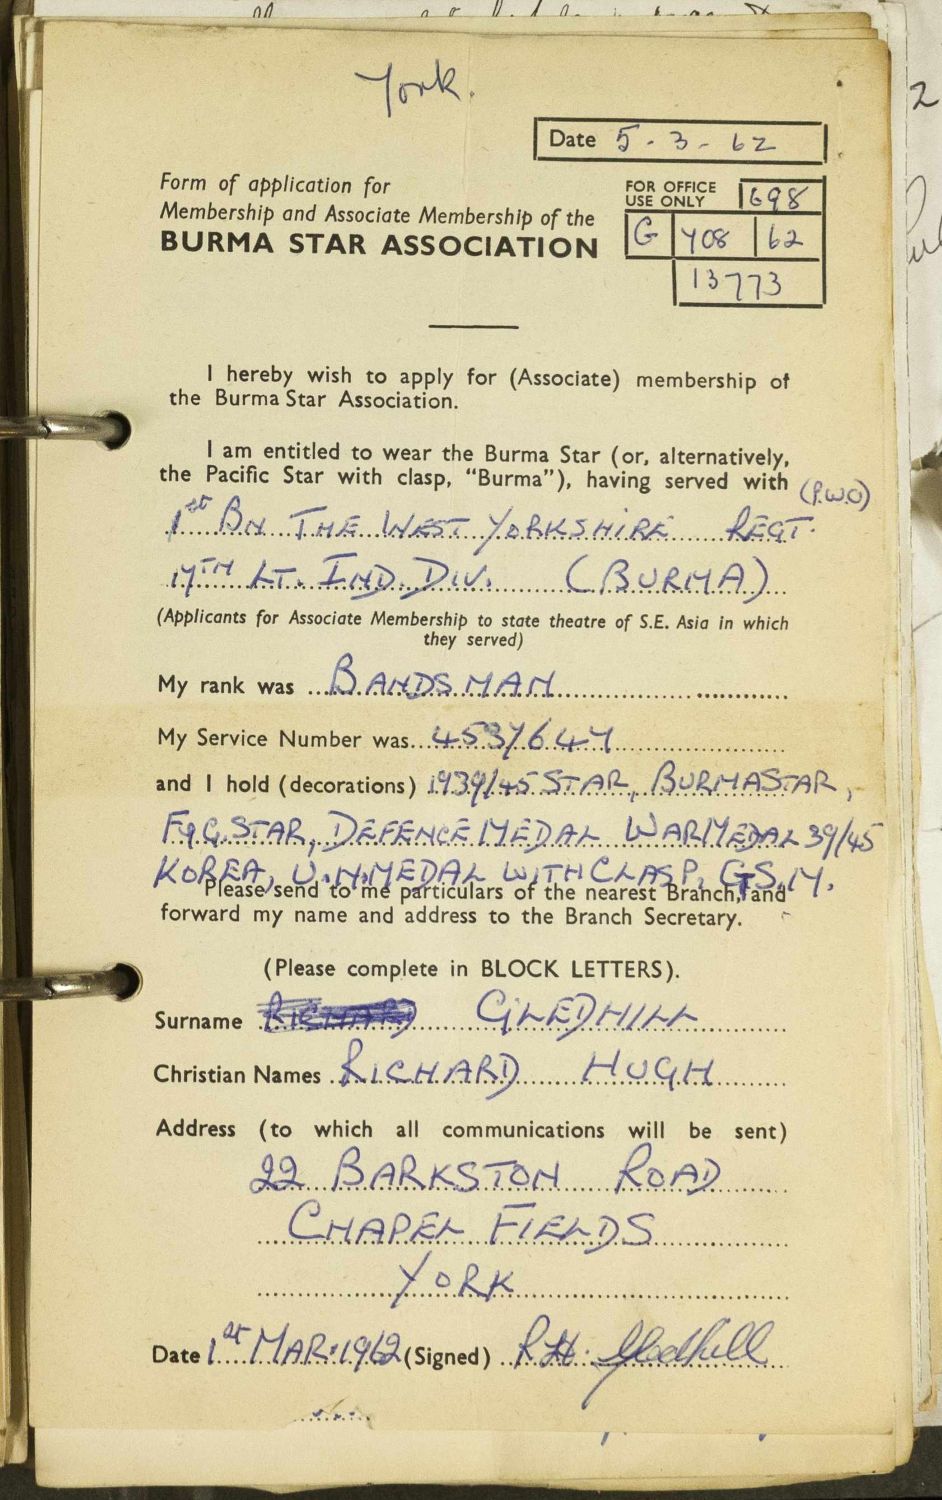 York.
Date 5-3-62
Form of application for
Membership and Associate Membership of the
BURMA STAR ASSOCIATION
FOR OFFICE
USE ONLY 1698
G 408 62
13773
I hereby wish to apply for (Associate) membership of
the Burma Star Association.
I am entitled to wear the Burma Star (or, alternatively,
the Pacific Star with clasp, "Burma"), having served with (P.W.O)
1st BN THE WEST YORKSHIRE REGT.
17TH LT. IND. DIV. (BURMA)
(Applicants for Associate Membership to state theatre of S.E. Asia in which
they served)
My rank was BANDSMAN
My Service Number was
and I hold (decorations) 1939/45 STAR, BURMA STAR,
F & G. STAR, DEFENCE MEDAL WAR MEDAL 39/45
KOREA, U.N. MEDAL WITH CLASP, G.S.M.
Please send to me particulars of the nearest Branch, and
forward my name and address to the Branch Secretary.
(Please complete in BLOCK LETTERS).
Surname RICHARD GLEDHILL
Christian Names RICHARD HUGH
Address (to which all communications will be sent)
22 BARKSTON ROAD
CHAPEL FIELDS
YORK
Date 1st MAR. 1962 (Signed) R.H. Gledhill